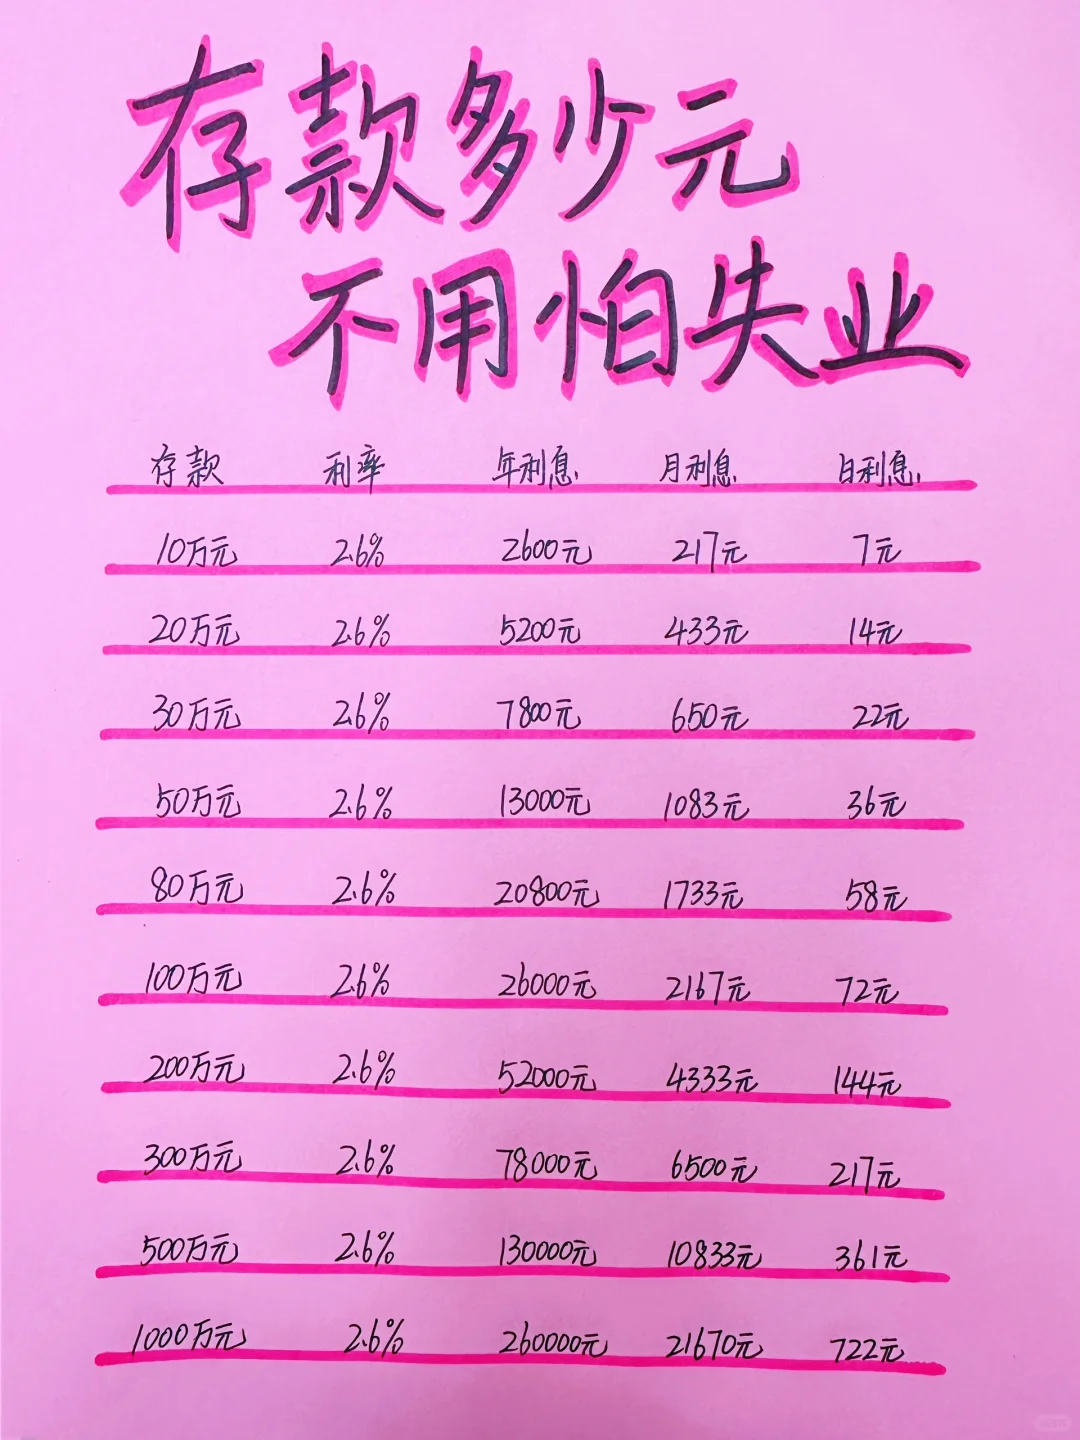 存款多少元
不用怕失业
存款 利率 年利息 月利息 日利息
10万元 2.6% 2600元 217元 7元
20万元 2.6% 5200元 433元 14元
30万元 2.6% 7800元 650元 22元
50万元 2.6% 13000元 1083元 36元
80万元 2.6% 20800元 1733元 58元
100万元 2.6% 26000元 2167元 72元
200万元 2.6% 52000元 4333元 144元
300万元 2.6% 78000元 6500元 217元
500万元 2.6% 130000元 10833元 361元
1000万元 2.6% 260000元 21670元 722元